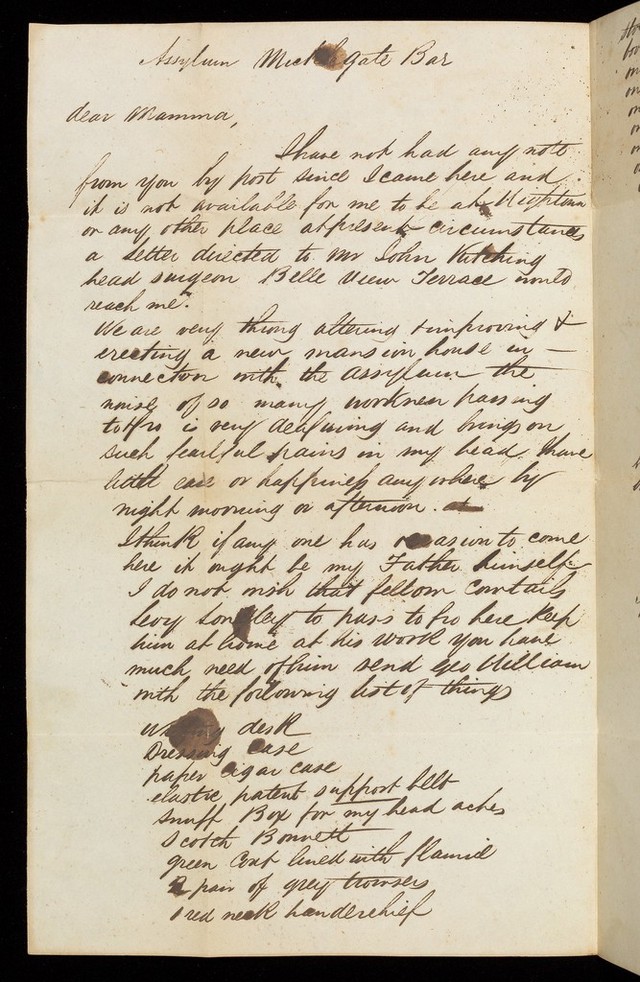 Assylum Mickl gate Bar
dear Mamma,
I have not had any note
from you by post since I came here and
it is not available for me to be at
or any other place at present circumstances
a letter directed to Mr John Kitching
head surgeon Belle View Terrace would
reach me.
We are very throng altering & improving &
erecting a new mansion house in —
connection with the Assylum the
noise of so many workmen passing
to & fro is very deafening and brings on
such fearful pains in my head I have
little ease or happiness any where by
night morning or afternoon.
I think if any one has reason to come
here it ought be my Father himself
I do not wish that fellow
Levy Longley to pass to fro here keep
him at home at his work you have
much need of him send Geo William
with the following list of things
writing desk
Dressing case
paper cigar case
elastic patent support belt
snuff Box for my head aches
Scotch Bonnett
green Coat lined with flannel
2 pair of grey trowsers
1 red neck handerchief